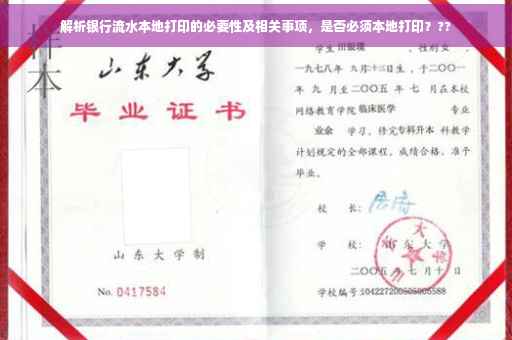 解析银行流水本地打印的必要性及相关事项，是否必须本地打印？??
样本
山东大学
毕业证书
山东大学制
No. 0417584
学生
性别女，
一九七八年 九月十三日生，于二〇〇一
年 九 月至二〇〇五 年 七 月在本校
网络教育学院临床医学 专业
业余 学习，修完专科升本 科教学
计划规定的全部课程，成绩合格，准予
毕业。
校 长：
学 校：山东大学
二〇〇五 年 七 月 十 日
学校编号：104227200505005588